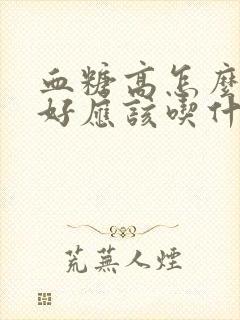 血糖高怎麼
好應該喫什
荒蕪人煙